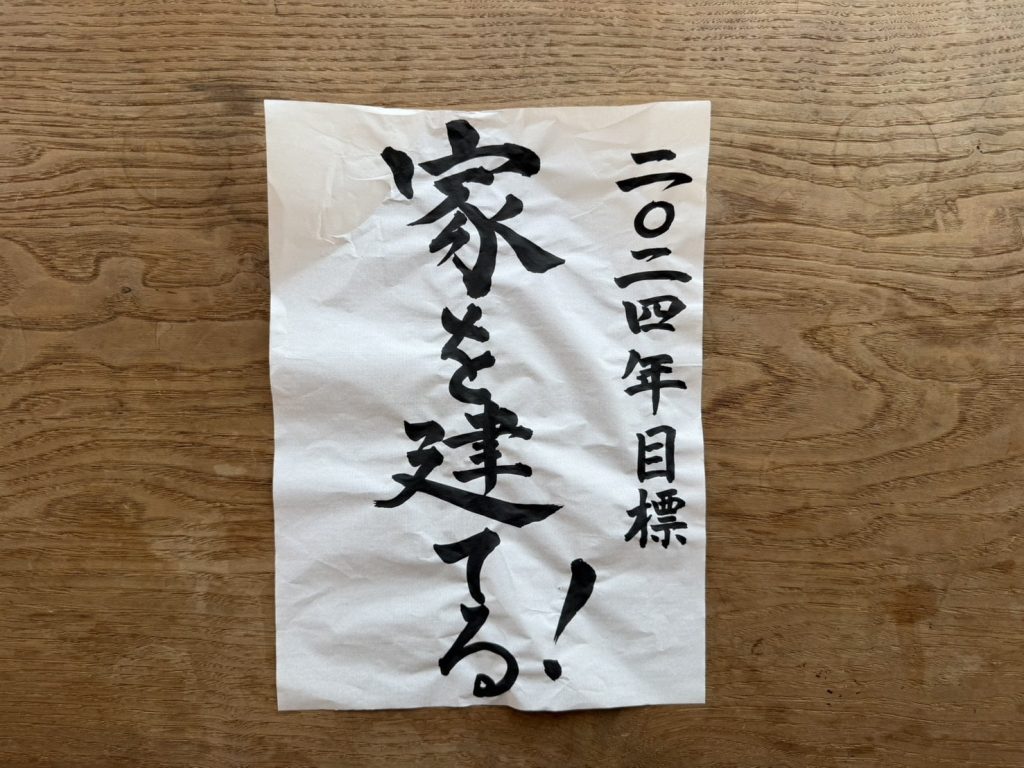 二〇二四年目標
家を建てる!